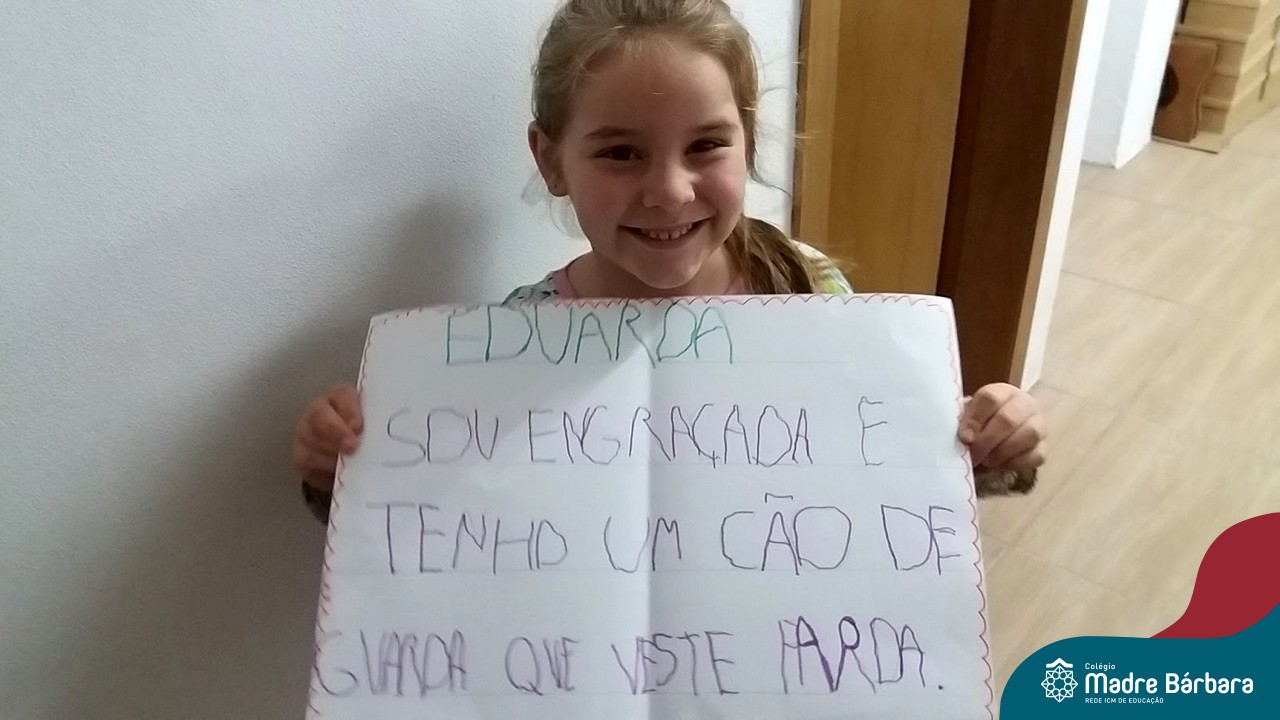 EDUARDA
SOU ENGRAÇADA E
TENHO UM CÃO DE
GUARDA QUE VESTE FARDA.
Colégio
Madre Bárbara
REDE ICM DE EDUCAÇÃO